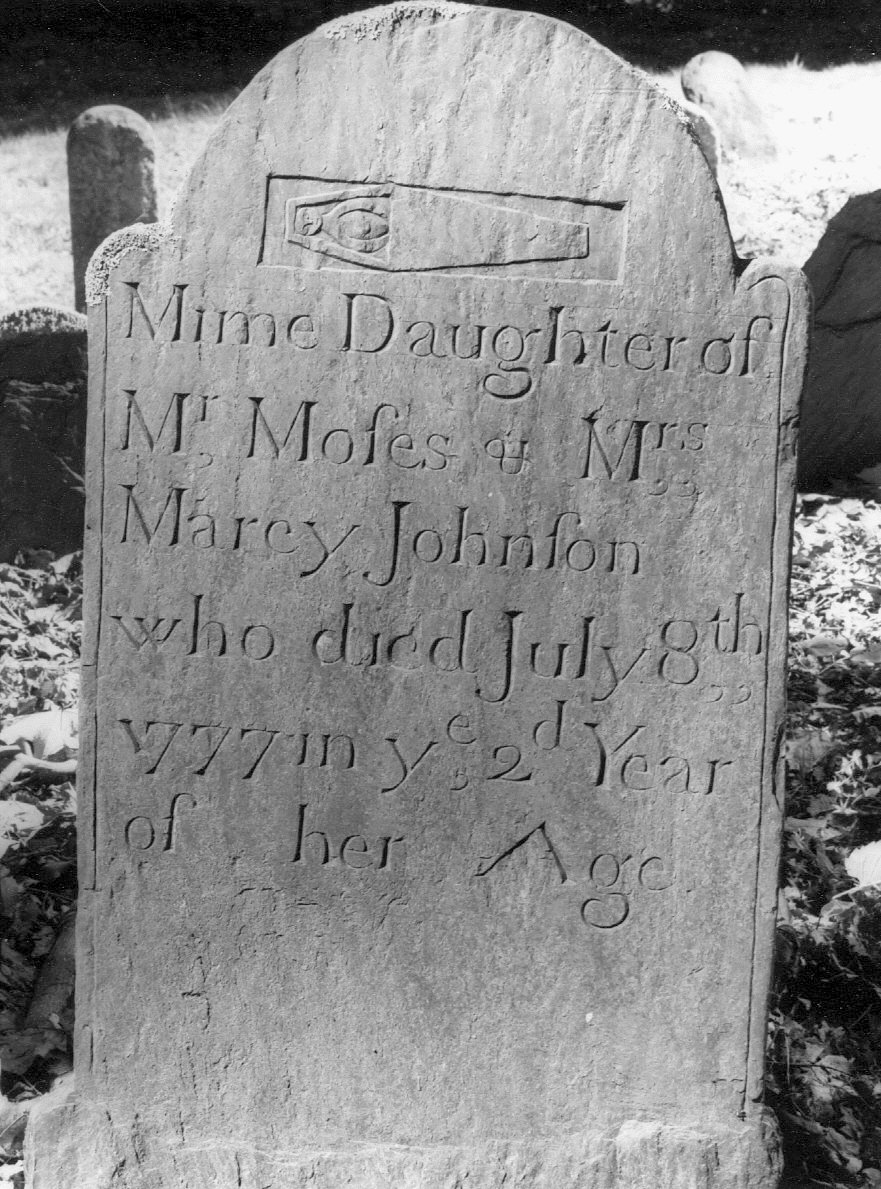 Mime Daughter of
Mr. Moſes & Mrs.
Marcy Johnſon
who died July 8th
1777 in ye 2d Year
of her Age